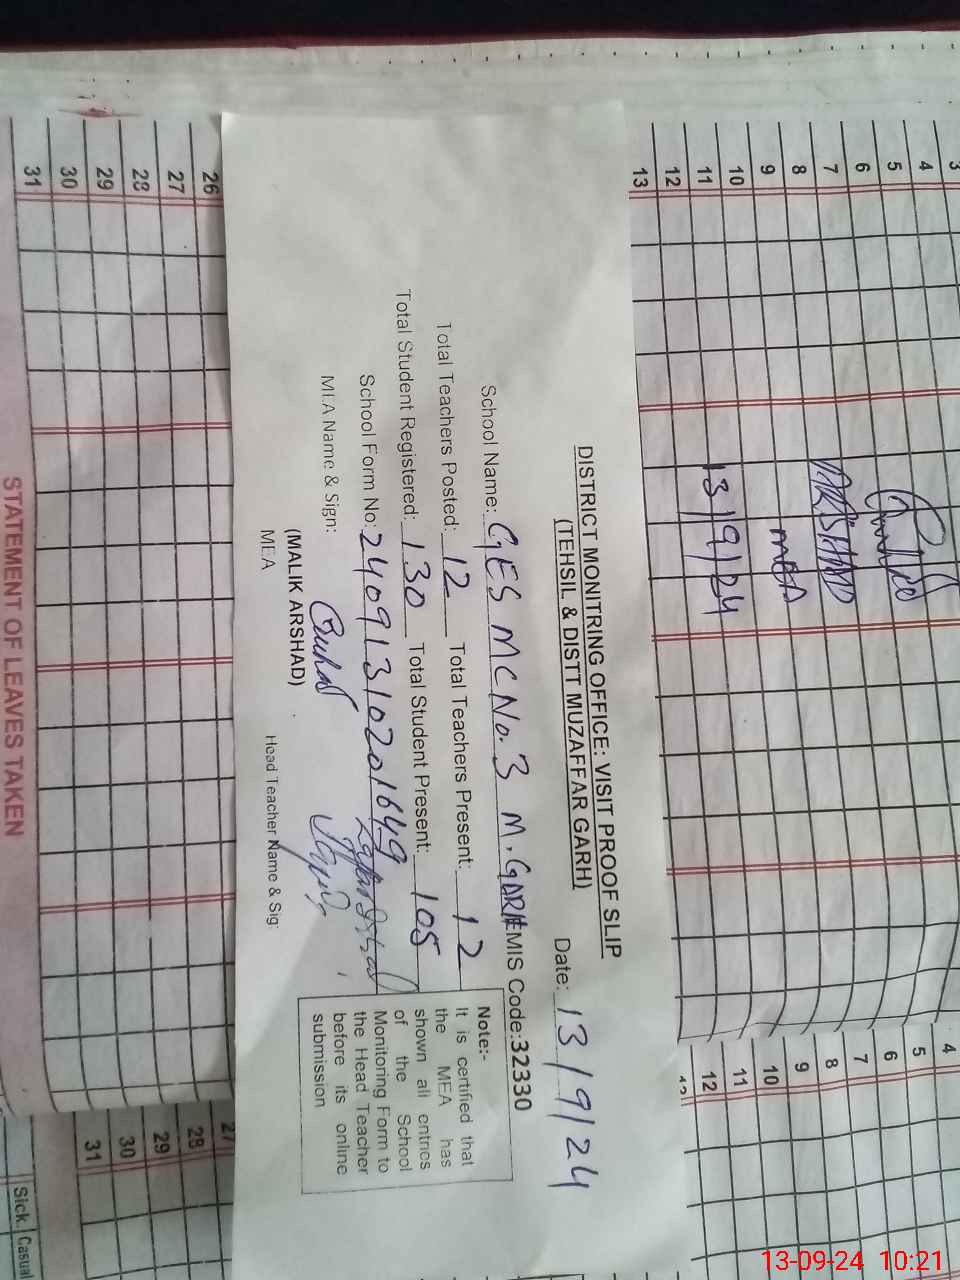 DISTRICT MONITRING OFFICE: VISIT PROOF SLIP
(TEHSIL & DISTT MUZAFFAR GARH)
Date: 13/9/24
School Name: GES MC No. 3 M. GARH EMIS Code:32330
Total Teachers Posted: 12 Total Teachers Present: 12
Total Student Registered: 130 Total Student Present: 105
School Form No: 24091310201649
MEA Name & Sign:
(MALIK ARSHAD)
MEA
Head Teacher Name & Sig:
Note:-
It is certified that
the MEA has
shown all entries
of the School
Monitoring Form to
the Head Teacher
before its online
submission
ARSHAD
MEA
13/9/24
3
4
5
6
7
8
9
10
11
12
13
26
27
28
29
30
31
STATEMENT OF LEAVES TAKEN
4
5
6
7
8
9
10
11
12
27
28
29
30
31
Sick. Casual
13-09-24 10:21